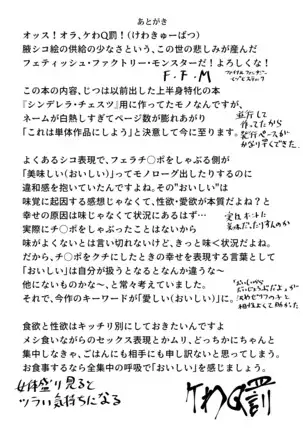 あとがき
オッス！オラ、ケわQ罰！(けわきゅーばつ)
腋シコ絵の供給の少なさという、この世の悲しみが産んだ
フェティッシュ・ファクトリー・モンスターだ！よろしくな！
F.F.M
この本の内容、じつは以前出した上半身特化の本
『シンデレラ・チェスツ』用に作ってたモノなんですが、
ネームが白熱しすぎてページ数が膨れあがり
「これは単体作品にしよう」と決意して今に至ります。
並行して
作ってたから
発行ペースが
かなり早くできた。
よくあるシコ表現で、フェラチ〇ポをしゃぶる側が
「美味しい(おいしい)」ってモノローグ出したりするのに
違和感を抱いていたんですよね。その"おいしい"は
味覚に起因する感想じゃなくて、性欲・愛欲が本質だよね？と
幸せの原因は味じゃなくて状況にあるはず…
実際にチ〇ポをしゃぶったことはないから
味がよくないとは言い切れないけど、きっと味<状況だよな。
だから、チ〇ポをクチにしたときの幸せを表現する言葉として
「おいしい」は自分が扱うとなるとなんか違うな～
他にないものかな～、と常々考えていました。
それで、今作のキーワードが「愛しい(おいしい)」に。
食欲と性欲はキッチリ別にしておきたいんですよ
メシ食いながらのセックス表現とかムリ、どっちかにちゃんと
集中しなきゃ、ごはんにも相手にも申し訳ないと思ってしまう。
お食事するなら全集中の呼吸で「おいしい」を感じましょう。
女体盛り見ると
ツラい気持ちになる
ケわQ罰